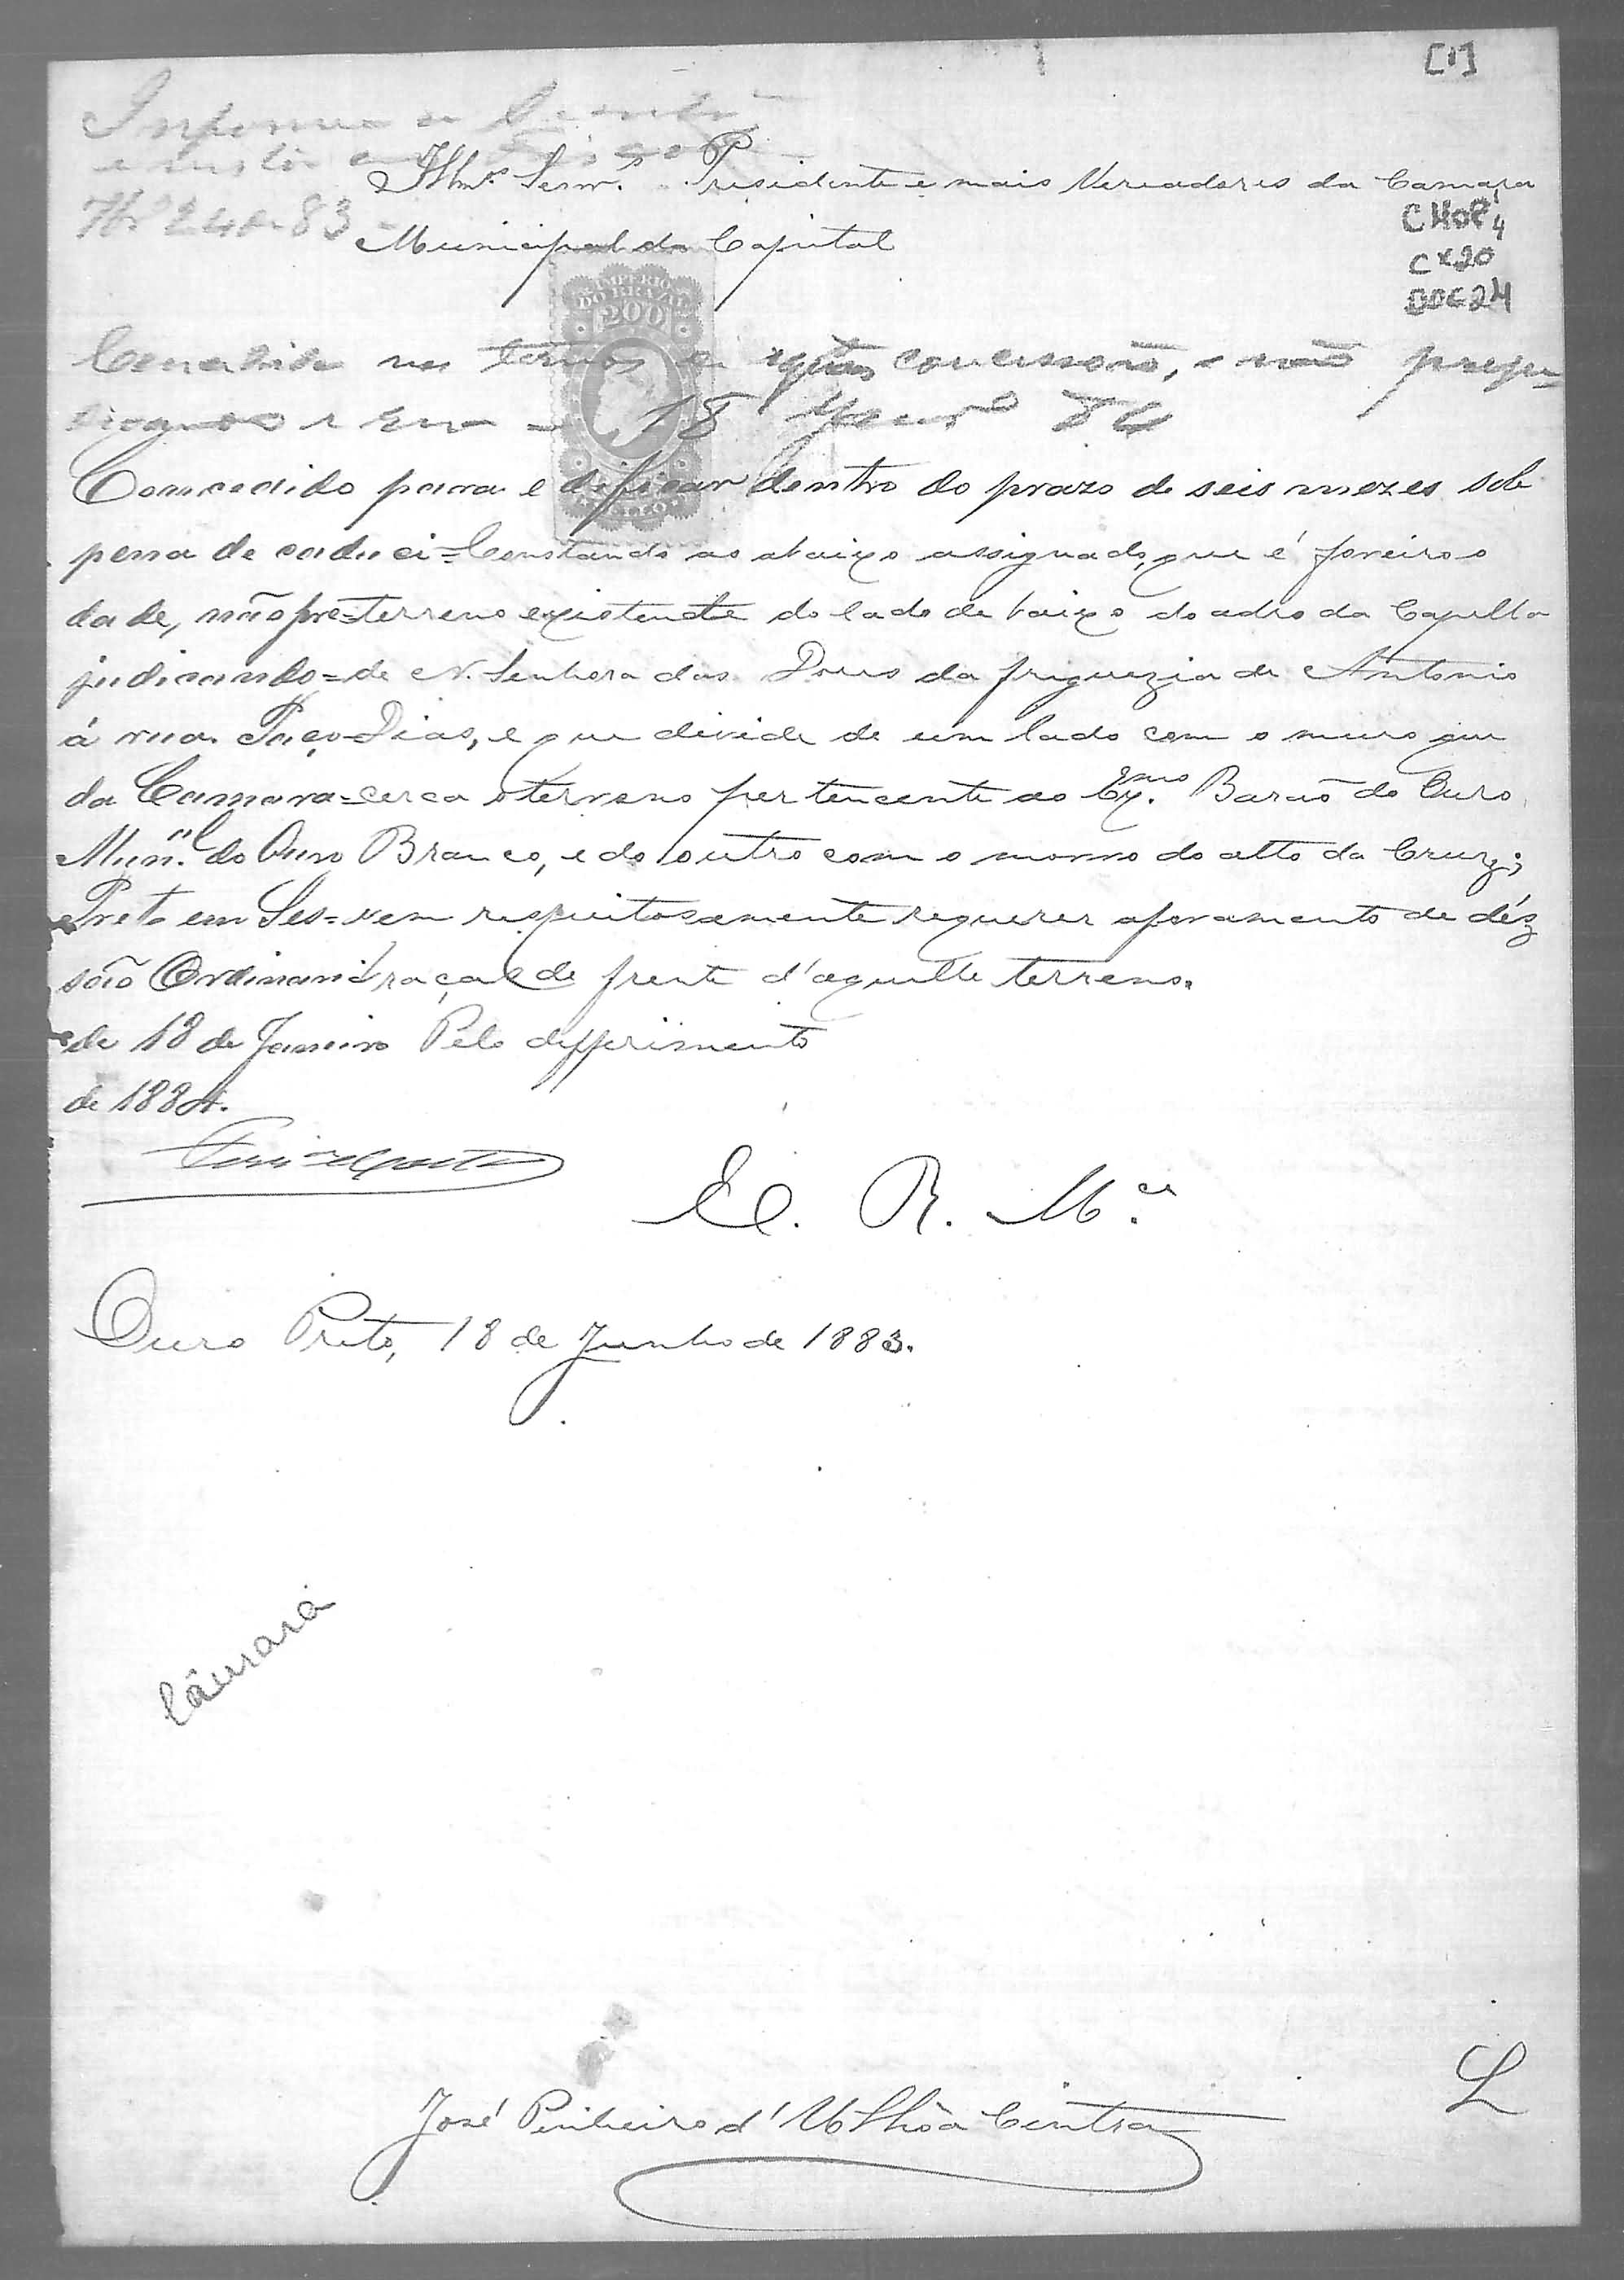 [1]
Informe a
Illmºs Senrs. Presidente e mais Vereadores da Camara
Municipal da Capital
CMOP
Cx20
DOC24
IMPERIO
DO BRAZIL
200
Concedida nos termos concessão, e não preju-
18 Janrº 84
Comcedido para edificar dentro do prazo de seis mezes sob
pena de caduci=
dade, não pre=
judicando=
á rua. Paço
da Camara=
Munal. do Ouro
Preto em Ses=
são Ordinaria
de 18 de Janeiro
de 1884.
Constando ao abaixo assignado, que é foreiro o
terreno existente do lado de baixo do adro da Capella
de N. Senhora das Dores da freguezia de Antonio
Dias, e que divide de um lado com o muro que
cerca o terreno pertencente ao Exmo. Barão do Ouro
Branco, e do outro com o morro do alto da Cruz;
vem respeitosamente requerer aforamento de déz
braças de frente d'aquelle terreno.
Pelo defferimento
E. R. Mce.
Ouro Preto, 18 de Junho de 1883.
Câmara
José Pinheiro d'Ulhôa Cintra